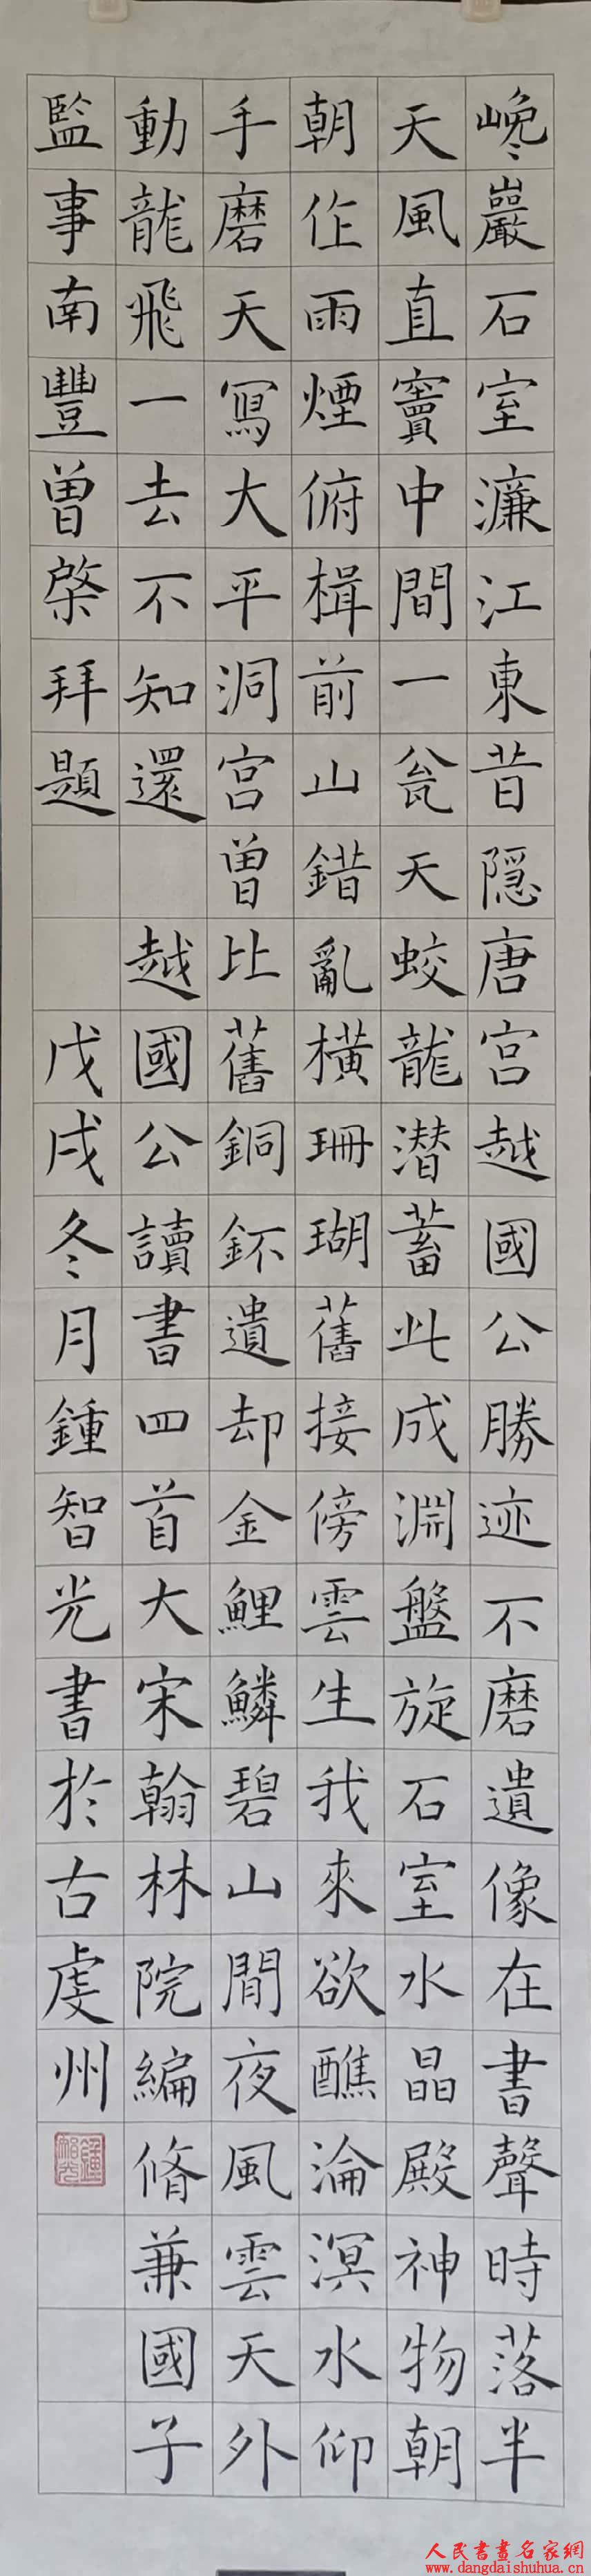 巉巖石室濂江東昔隱唐宮越國公勝迹不磨遺像在書聲時落半
天風直竇中間一瓮天蛟龍潜蓄此成淵盤旋石室水晶殿神物朝
朝作雨煙俯楫前山錯亂橫珊瑚舊接傍雲生我來欲醮淪溟水仰
手磨天寫大平洞宮曾比舊銅鈈遺却金鯉鱗碧山閒夜風雲天外
動龍飛一去不知還 越國公讀書四首大宋翰林院編脩兼國子
監事南豐曾棨拜題 戊戌冬月鍾智光書於古虔州
人民書畫名家網
www.dangdaishuhua.com